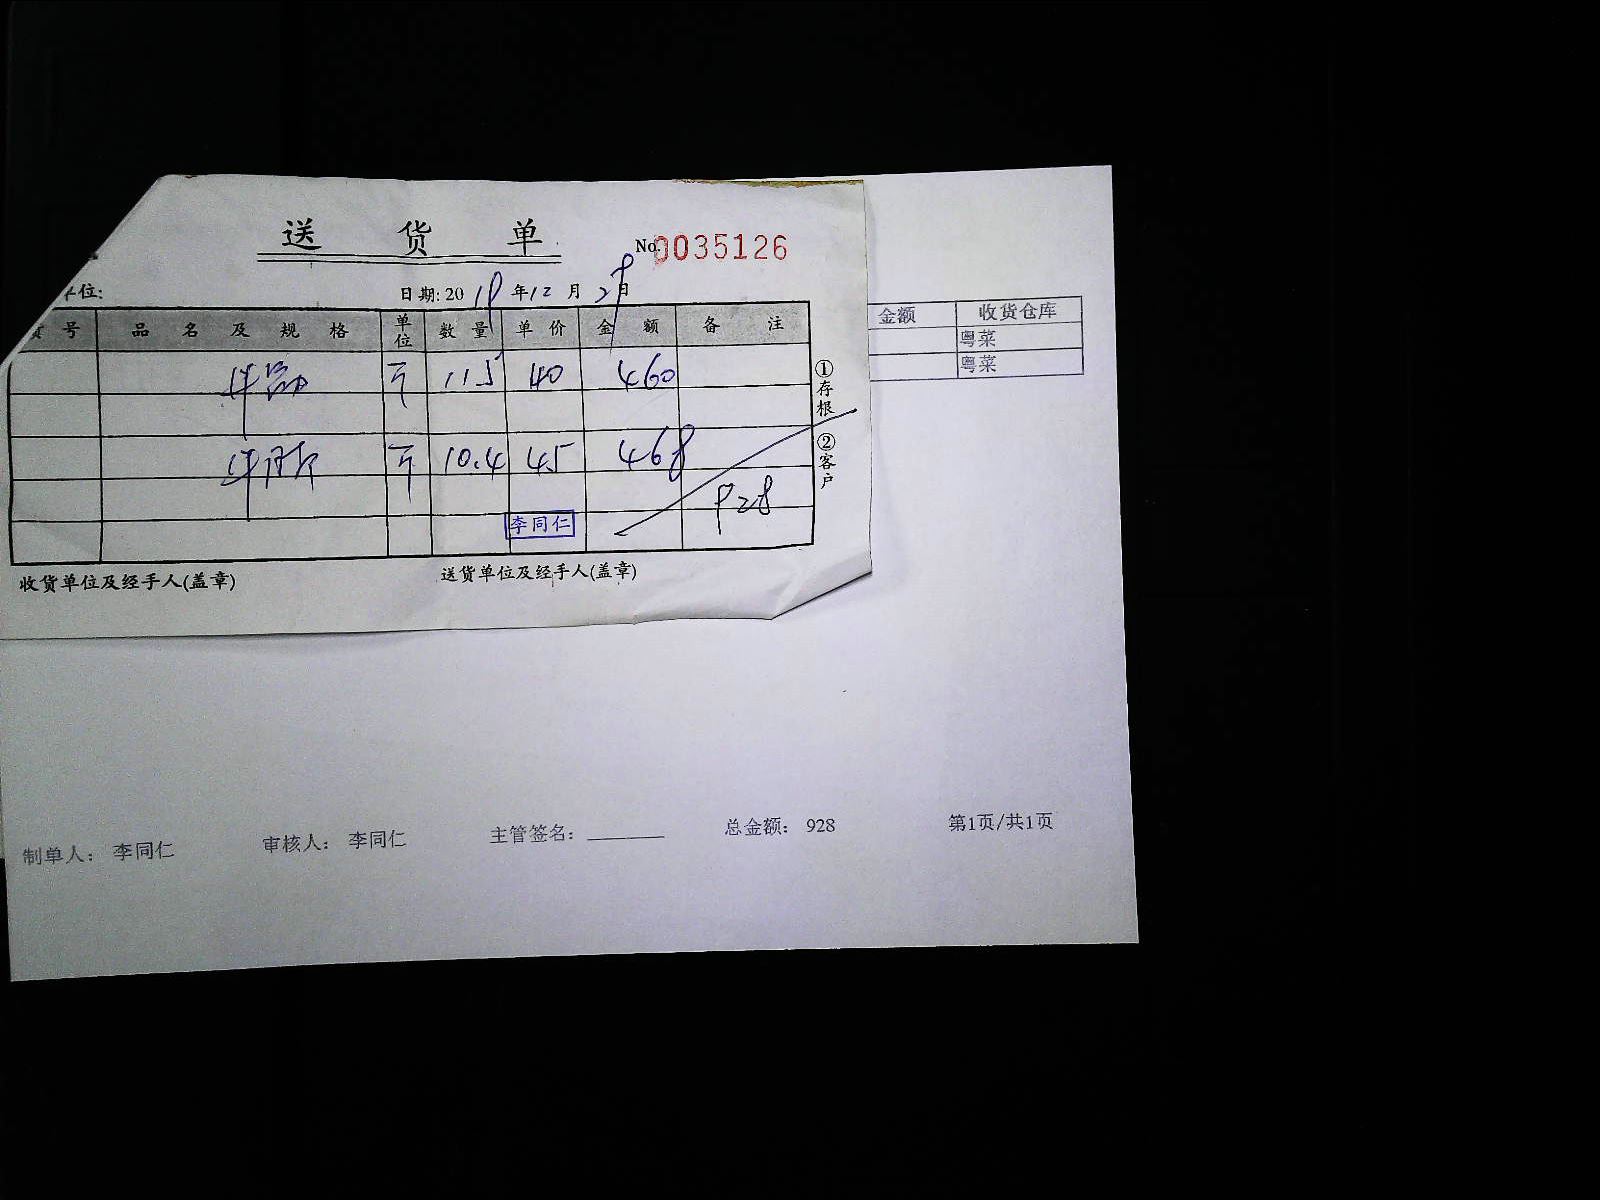 送 货 单
No. 0035126
单位:
日期: 2019 年 12 月 29 日
货号 品名及规格 单位 数量 单价 金额 备注
斤 11.5 40 460
斤 10.4 45 468
928
李同仁
①存根 ②客户
收货单位及经手人(盖章) 送货单位及经手人(盖章)
金额 收货仓库
粤菜
粤菜
制单人： 李同仁 审核人： 李同仁 主管签名： 总金额： 928 第1页/共1页